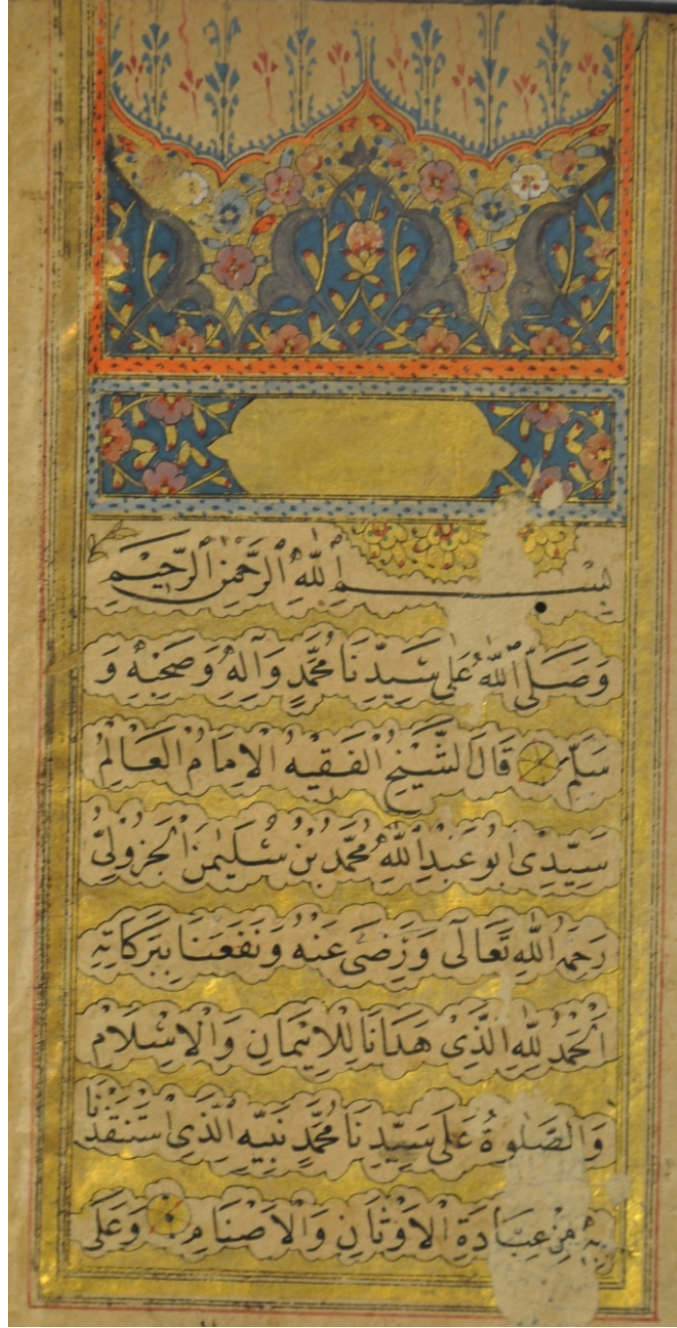 بِسْمِ اللّٰهِ الرَّحْمٰنِ الرَّحِيْمِ
وَصَلَّى اللّٰهُ عَلٰى سَيِّدِنَا مُحَمَّدٍ وَآلِهٖ وَصَحْبِهٖ وَ
سَلَّمَ قَالَ الشَّيْخُ الْفَقِيْهُ الْاِمَامُ الْعَالِمُ
سَيِّدِى اَبُو عَبْدِ اللّٰهِ مُحَمَّدُ بْنُ سُلَيْمٰنَ الْجَزُوْلِىُّ
رَحِمَهُ اللّٰهُ تَعَالٰى وَرَضِىَ عَنْهُ وَنَفَعَنَا بِبَرَكَاتِهٖ
اَلْحَمْدُ لِلّٰهِ الَّذِىْ هَدَانَا لِلْاِيْمَانِ وَالْاِسْلَامِ
وَالصَّلٰوةُ عَلٰى سَيِّدِنَا مُحَمَّدٍ نَبِيِّهِ الَّذِى اسْتَنْقَذَنَا
بِهٖ مِنْ عِبَادَةِ الْاَوْثَانِ وَالْاَصْنَامِ وَعَلٰى